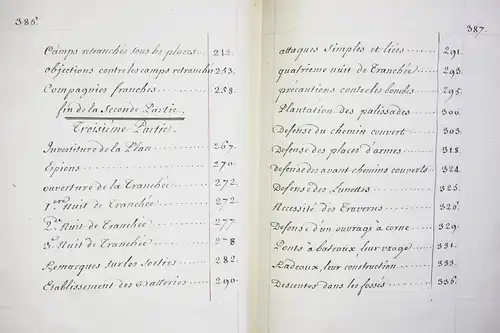 386.
Camps retranchés sous les places 242.
objections contre les camps retranchés 253.
Compagnies franches 258.
fin de la Seconde Partie.
Troisième Partie.
Investiture de la Place 267.
Espions 270.
ouverture de la Tranchée 272.
1ere Nuit de Tranchée 272
2de Nuit de Tranchée 277
3e Nuit de Tranchée 278
Remarques sur les Sorties 282.
Etablissement des Batteries 290.
387.
attaques simples et liées 291.
quatrieme nuit de Tranchée 293.
précautions contre les bombes 295.
Plantation des palissades 300.
Defense du chemin couvert 303.
Defense des places d'armes 318.
defense des avant chemins couverts 324.
Defense des Lunettes 325.
Necessité des Traverses 326.
Defense d'un ouvrage à corne 329.
Ponts à bateaux, leur usage 331.
Radeaux, leur construction 333.
Descentes dans les fossés 336.